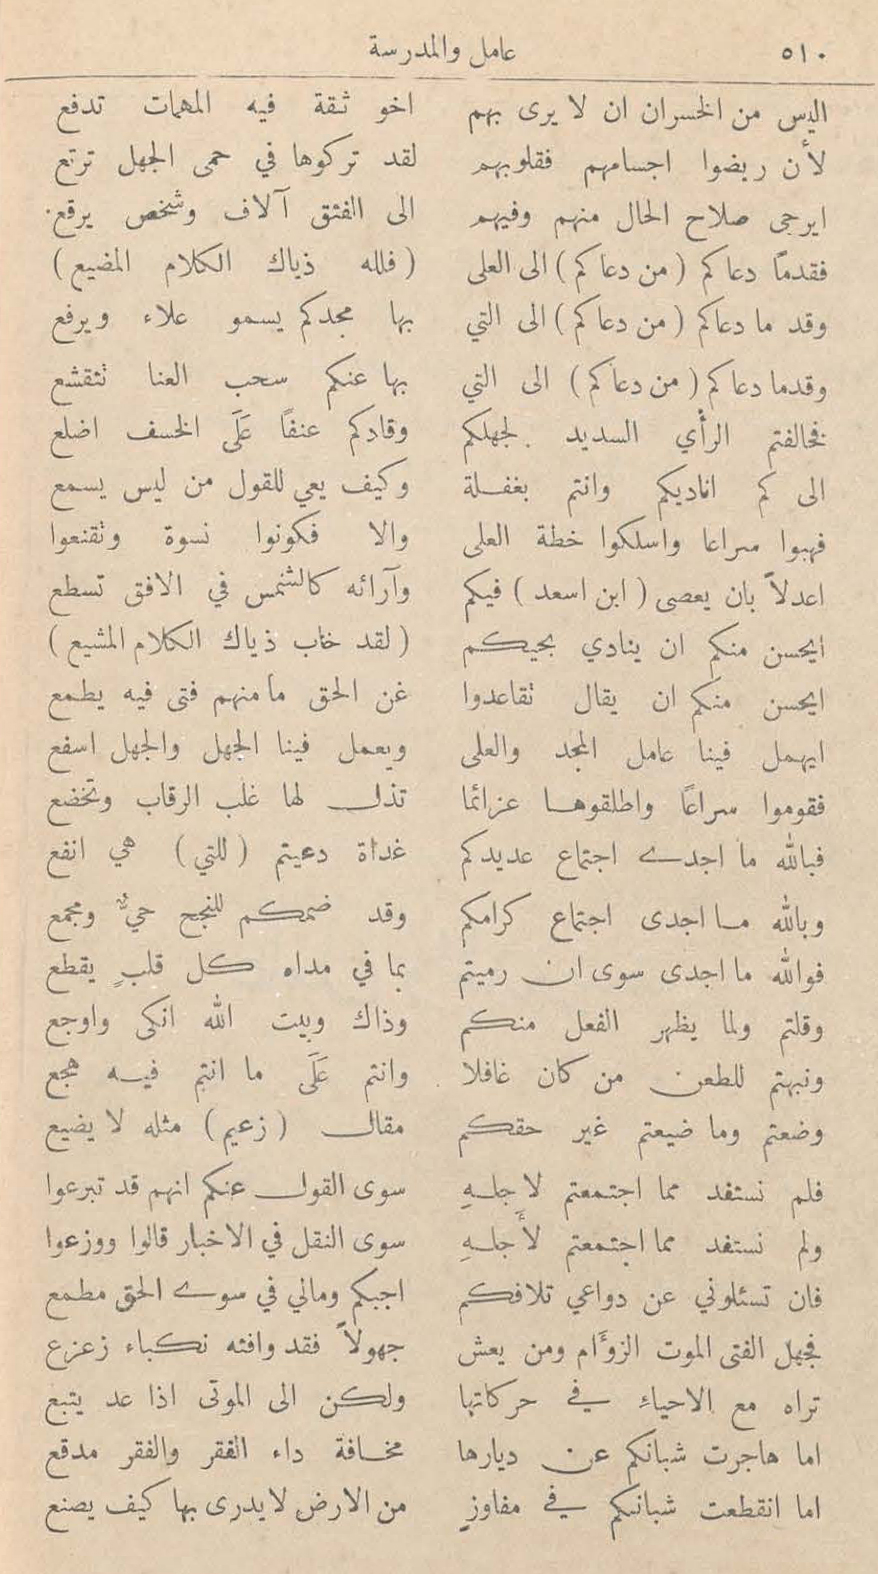 ٥١٠ عامل والمدرسة
اليس من الخسران ان لا يرى بهم اخو ثقة فيه المهمات تدفع
لأن ريضوا اجسامهم فقلوبهم لقد تركوها في حمى الجهل ترتع
ايرجى صلاح الحال منهم وفيهم الى الفتق آلاف وشخص يرقع
فقدماً دعاكم (من دعاكم) الى العلى (فلله ذياك الكلام المضيع)
وقد ما دعاكم (من دعاكم) الى التي بها مجدكم يسمو علاء ويرفع
وقدما دعاكم (من دعاكم) الى التي بها عنكم سحب العنا تتقشع
فخالفتم الرأي السديد لجهلكم وقادكم عنفاً عَلَى الخسف اضلع
الى كم اناديكم وانتم بغفلة وكيف يعي للقول من ليس يسمع
فهبوا سراعا واسلكوا خطة العلى والا فكونوا نسوة وتقنعوا
اعدلاً بان يعصى (ابن اسعد) فيكم وآرائه كالشمس في الافق تسطع
ايحسن منكم ان ينادي بحيكم (لقد خاب ذياك الكلام المشيع)
ايحسن منكم ان يقال تقاعدوا عن الحق ما منهم فتى فيه يطمع
ايهمل فينا عامل المجد والعلى ويعمل فينا الجهل والجهل اسفع
فقوموا سراعاً واطلقوها عزائما تذل لها غلب الرقاب وتخضع
فبالله ما اجدى اجتماع عديدكم غداة دعيتم (للتي) هي انفع
وبالله ما اجدى اجتماع كرامكم وقد ضمكم للنجح حيٌّ ومجمع
فوالله ما اجدى سوى ان رميتم بما في مداه كل قلبٍ يقطع
وقلتم ولما يظهر الفعل منكم وذاك وبيت الله انكى واوجع
ونبهتم للطعن من كان غافلا وانتم عَلَى ما انتم فيه هجع
وضعتم وما ضيعتم غير حقكم مقال (زعيم) مثله لا يضيع
فلم نستفد مما اجتمعتم لاجلهِ سوى القول عنكم انهم قد تبرعوا
ولم نستفد مما اجتمعتم لأجلهِ سوى النقل في الاخبار قالوا ووزعوا
فان تسئلوني عن دواعي تلافكم اجبكم ومالي في سوى الحق مطمع
فجهل الفتى الموت الزوأم ومن يعش جهولاً فقد وافته نكباء زعزع
تراه مع الاحياء في حركاتها ولكن الى الموتى اذا عد يتبع
اما هاجرت شبانكم عن ديارها مخافة داء الفقر والفقر مدقع
اما انقطعت شبانكم في مفاوزٍ من الارض لا يدرى بها كيف يصنع